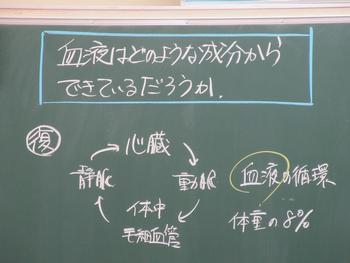 血液はどのような成分から
できているだろうか.
復
心臓
静脈
動脈
体中
毛細血管
血液の循環
体重の8%